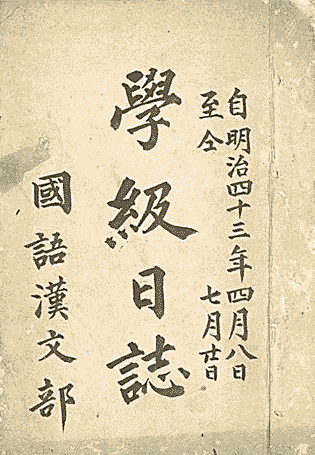 自明治四十三年四月八日
至仝　　　　　七月廿日
學級日誌
國語漢文部